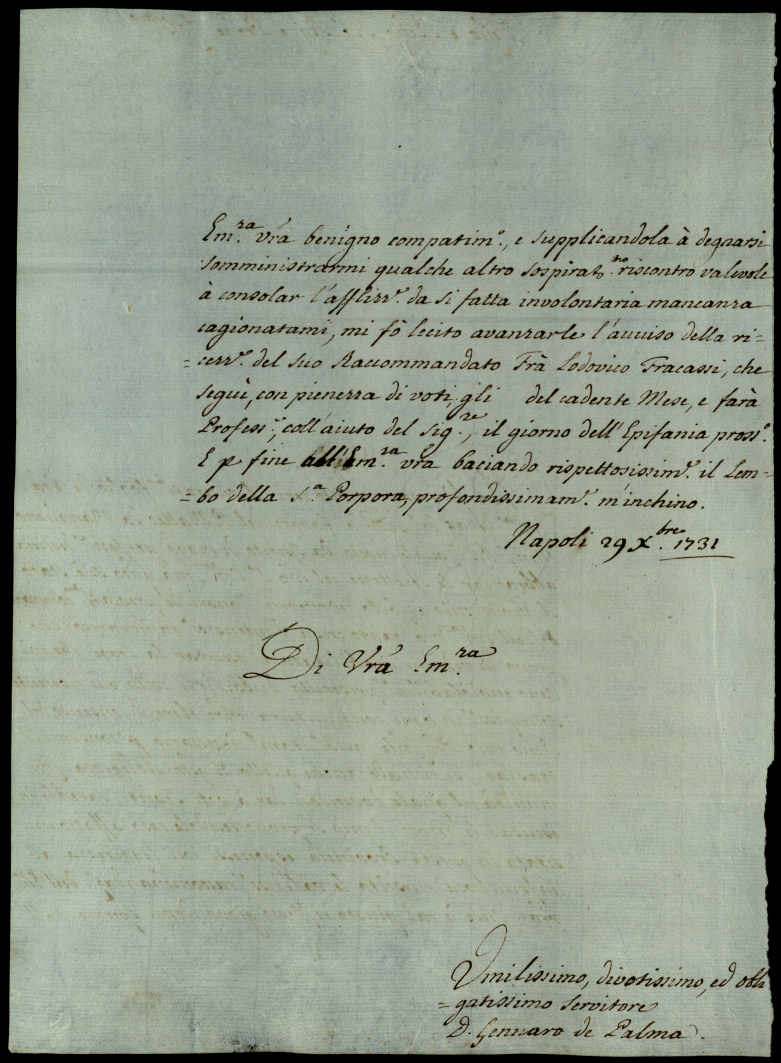 Em.ra Vrã benigno compatim.o, e supplicandola à degnarsi
somministrarmi qualche altro sospirat.mo riscontro valevole
à consolar l'afflizz.e da si fatta involontaria mancanza
cagionatami, mi fò lecito avanzarle l'avviso della ri=
=cezz.e del suo Raccommandato Frà Lodovico Fracassi, che
seguì, con pienezza di voti, gli del cadente Mese, e farà
Profess.e, coll'aiuto del Sig.re, il giorno dell'Epifania pross.o
E p fine all'Em.za Vrã baciando rispettosissim.e il Lem=
=bo della S.a Porpora, profondissimam.e m'inchino.
Napoli 29 Xbre. 1731
Di Vrã Em.za
Umilissimo, divotissimo, ed obli
=gatissimo Servitore
D. Gennaro de Palma.